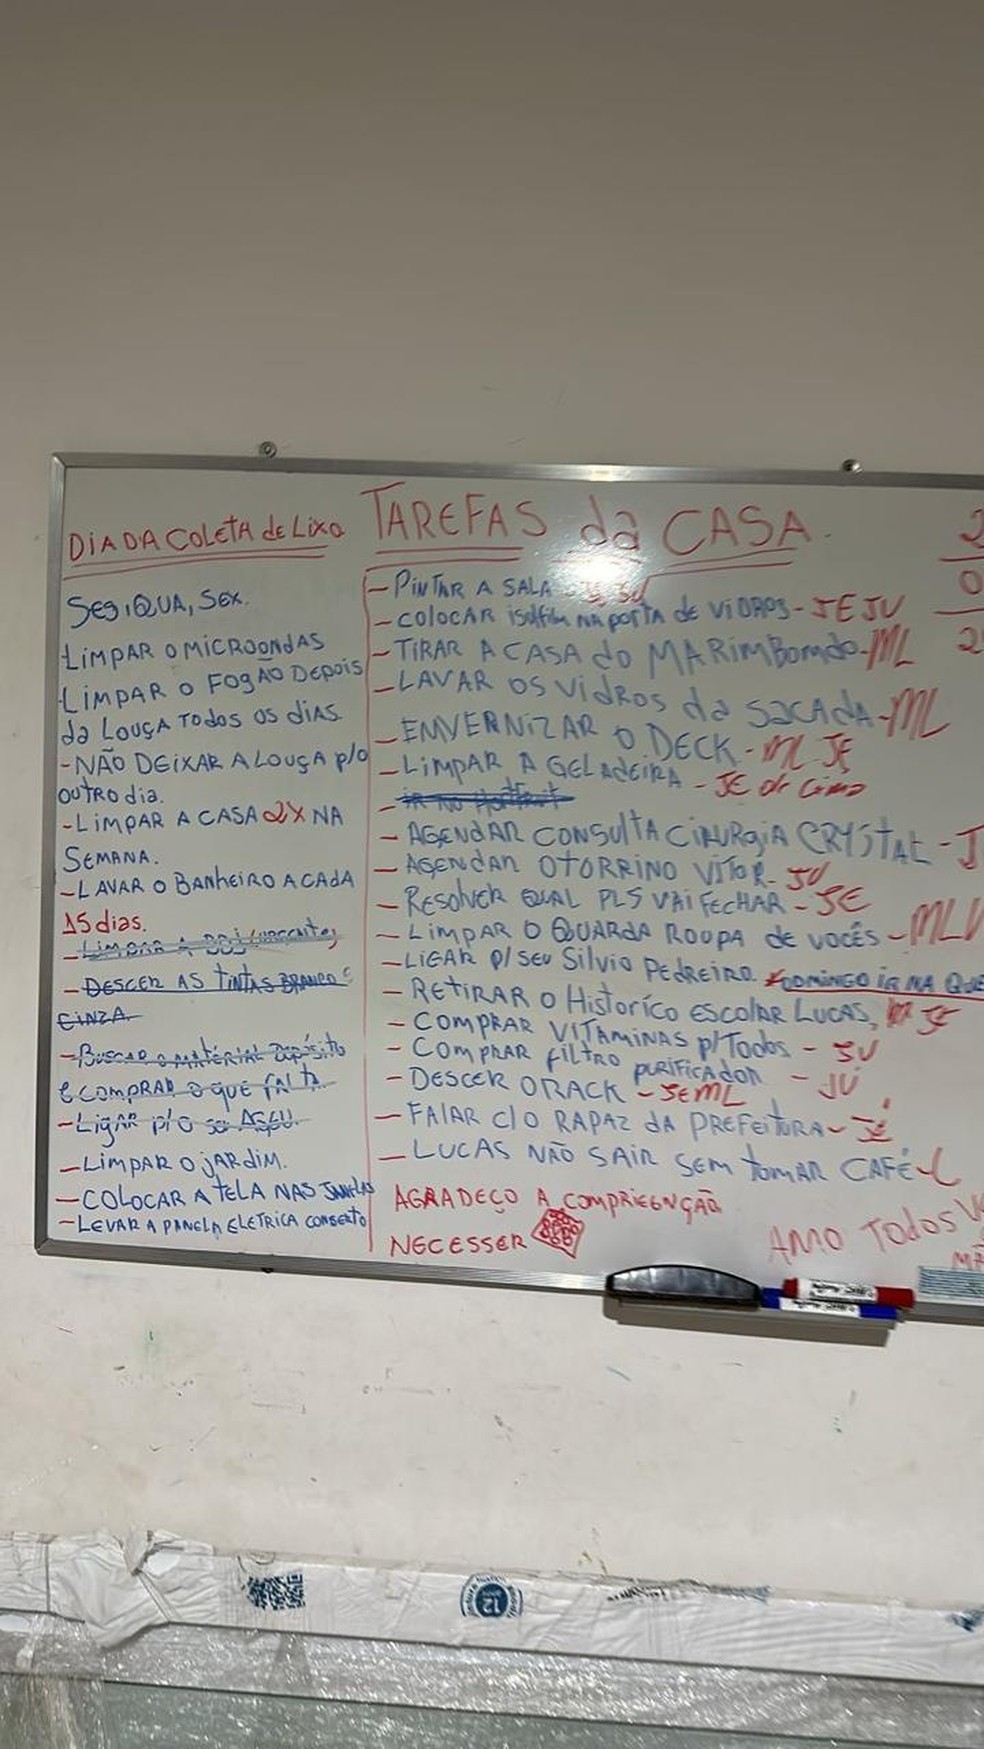 DIA DA COLETA de LIXO
SEG, QUA, SEX.
LIMPAR O MICROONDAS
LIMPAR O FOGÃO DEPOIS
da LOUÇA TODOS OS dIAS.
- NÃO DEIXAR A LOUÇA p/o
OUTRO dia.
- LIMPAR A CASA 2X NA
SEMANA.
- LAVAR O BANHEIRO A CADA
15 dias.
- LIMPAR A
- DESCER AS TINTAS BRANCO E
CINZA.
- BUSCAR O MATERIAL DEPÓSITO
e COMPRAR O QUE FALTA
- LIGAR p/o
- LIMPAR O JARDIM.
- COLOCAR A TELA NAS JANELAS
- LEVAR A PANELA ELETRICA CONSERTO
TAREFAS da CASA.
- PINTAR A SALA - JE, JU
- COLOCAR isulfilm NA PORTA DE VIDROS - JE JU
- TIRAR A CASA do MARIMBOMdo - ML
- LAVAR OS VIDROS da SACADA - ML
- ENVERNIZAR O DECK - ML JE
- LIMPAR A GELADEIRA - JE de Cima
- iR NO Hortifruti
- AGENDAR CONSULTA CIRURGIA CRYSTAL - J
- AGENDAR OTORRINO VITOR - JU
- RESOLVER QUAL PLS VAI FECHAR - JE
- LIMPAR O GUARDA ROUPA DE VOCÊS - MLV
- LIGAR P/ SEU SILVIO PEDREIRO. *DOMINGO IR NA QUE
- RETIRAR O HISTORÍCO ESCOLAR LUCAS, JE
- COMPRAR VITAMINAS p/Todos - JU
- COMPRAR FILTRO PURIFICADOR - JU
- DESCER O RACK - JE ML
- FALAR C/O RAPAZ DA PREFEITURA - JÉ
- LUCAS NÃO SAIR SEM TOMAR CAFÉ - L
AGRADEÇO A COMPREENÇÃO
NECESSER
AMO TODOS V
MÃ
2
0
2
12